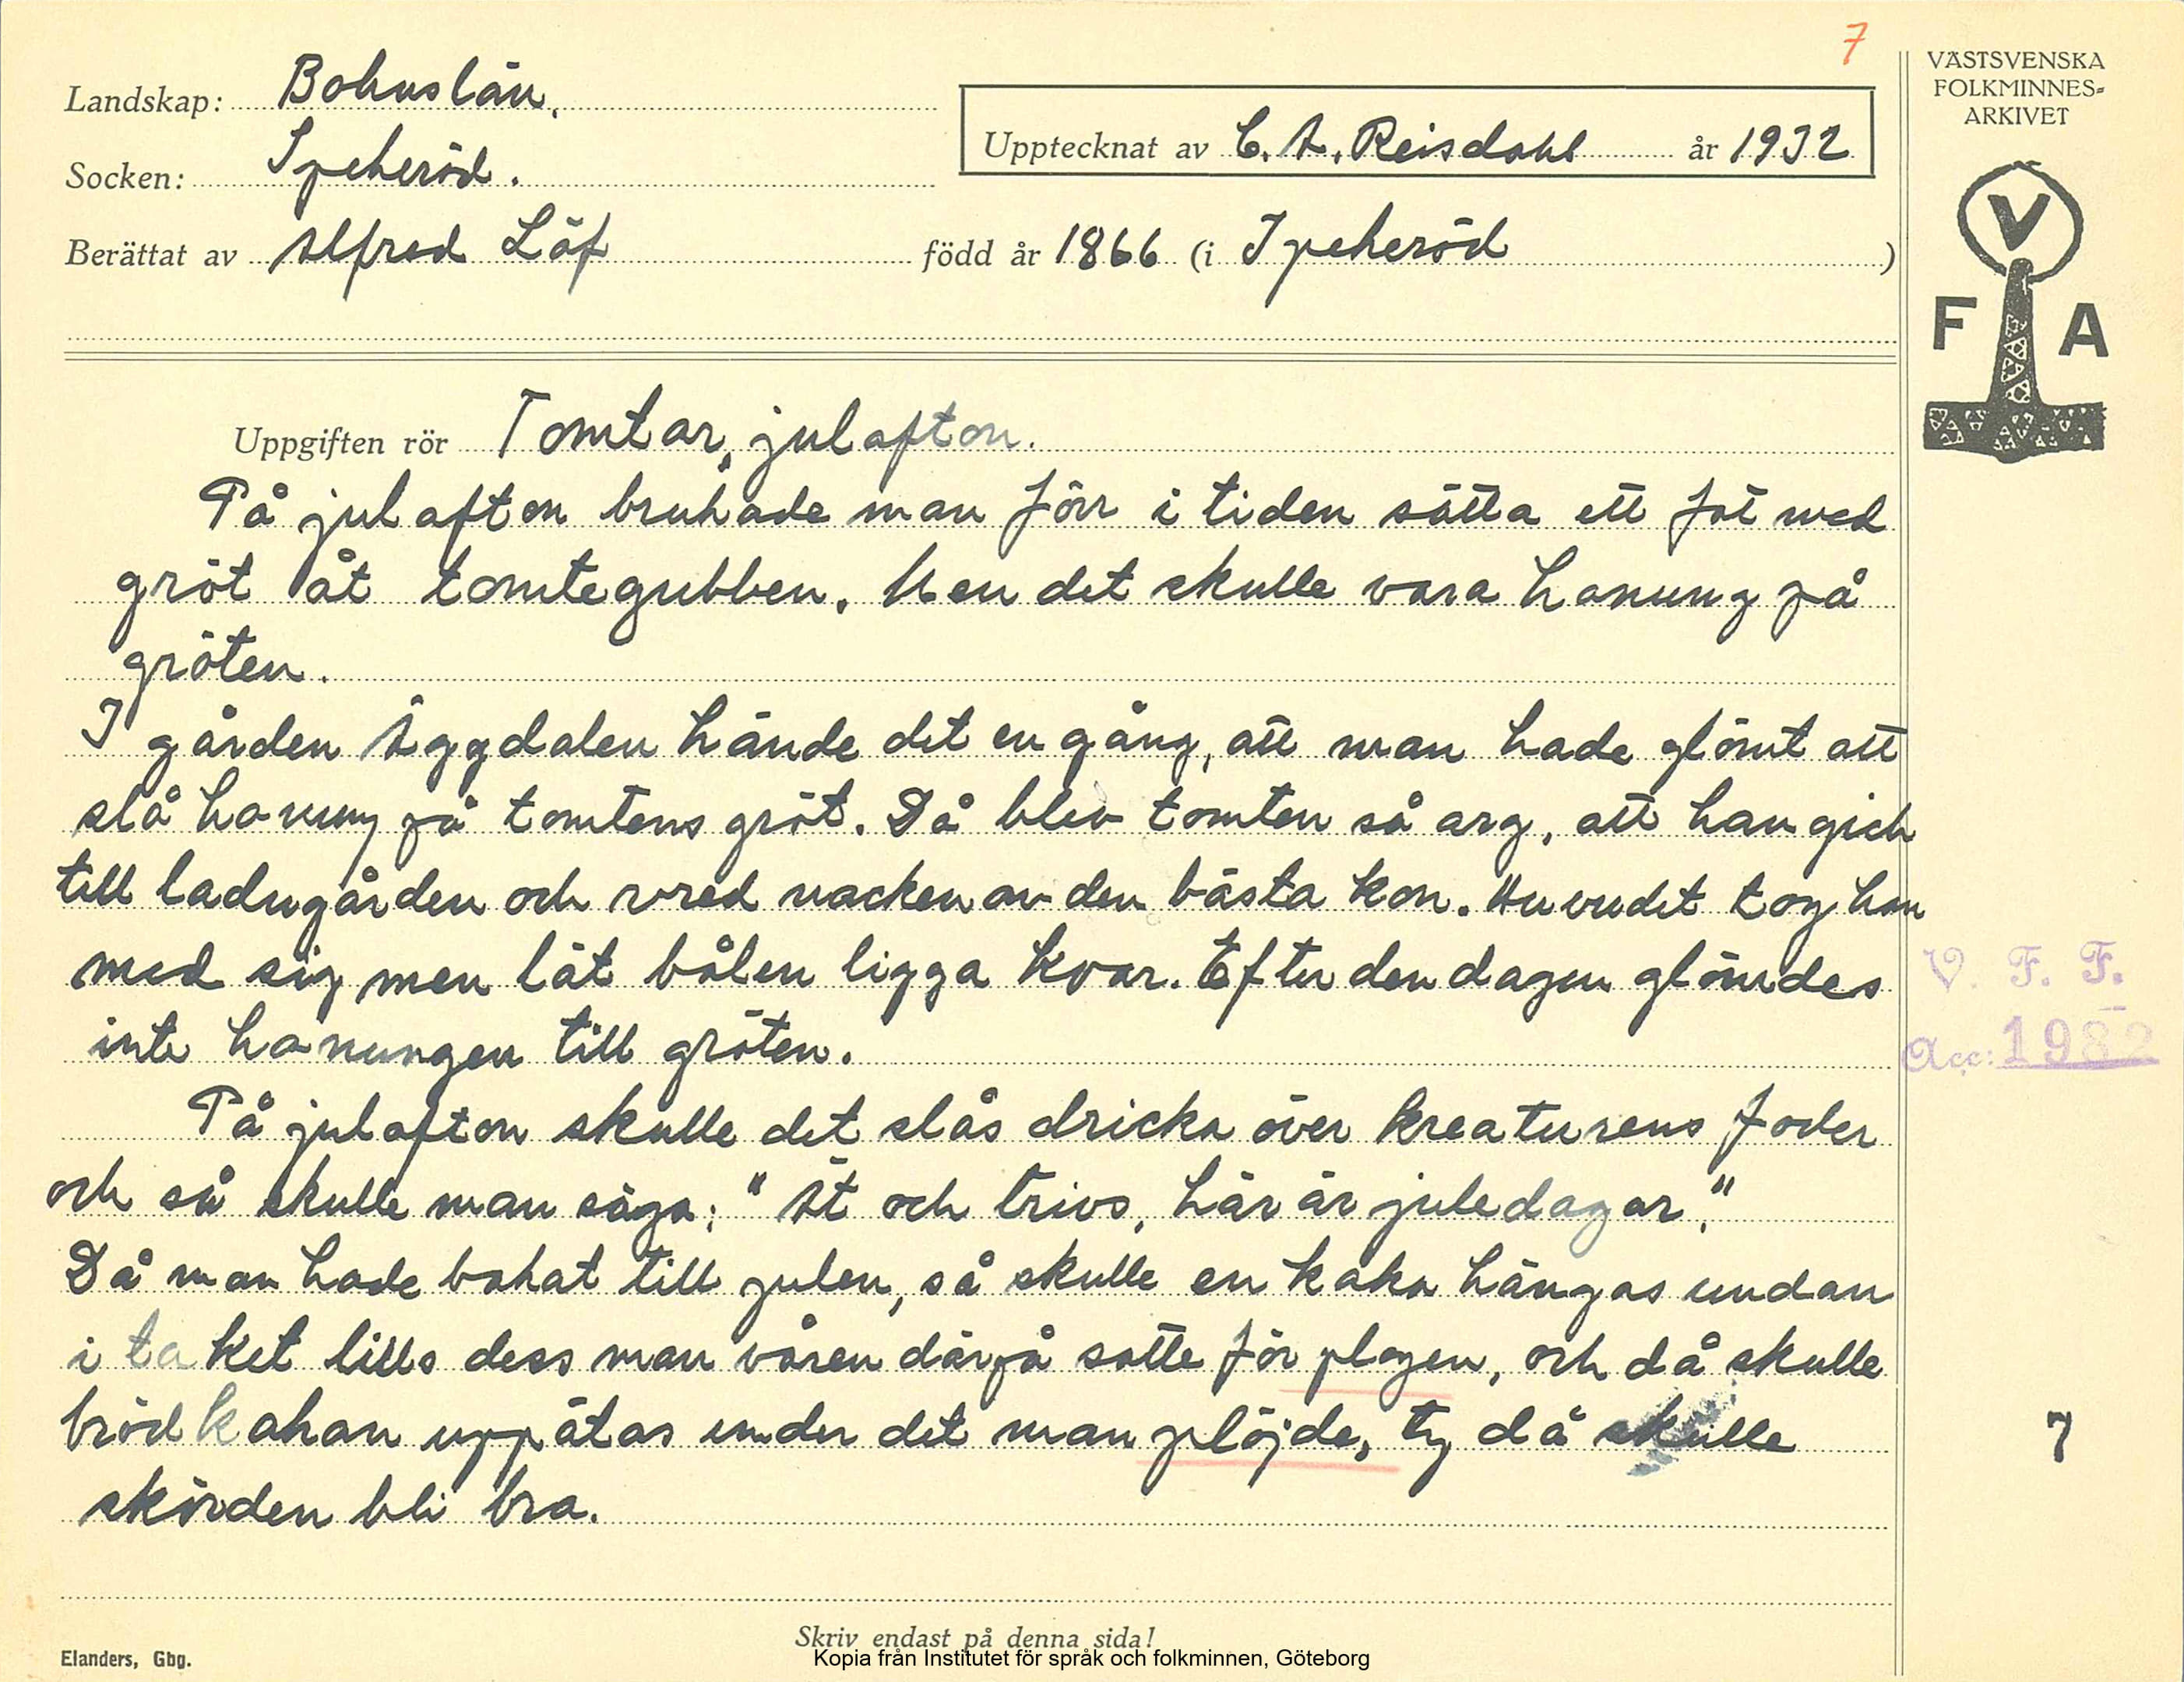 7
VÄSTSVENSKA
FOLKMINNES-
ARKIVET
Landskap: Bohuslän.
Upptecknat av C. A. Reisdahl år 1932
Socken: Spekeröd.
Berättat av Alfred Löf född år 1866 (i Spekeröd)
V
F A
Uppgiften rör Tomtar, julafton.
På julafton brukade man förr i tiden sätta ett fat med
gröt åt tomtegubben. Men det skulle vara honung på
gröten.
I gården Äggdalen hände det en gång, att man hade glömt att
slå honung på tomtens gröt. Då blev tomten så arg, att han gick
till ladugården och vred nacken av den bästa kon. Huvudet tog han
med sig men lät bålen ligga kvar. Efter den dagen glömdes
inte honungen till gröten.
På julafton skulle det slås dricka över kreaturens foder
och så skulle man säga: "Ät och trivs, här är juledagar."
Då man hade bakat till julen, så skulle en kaka hängas undan
i taket tills dess man våren därpå satte för plogen, och då skulle
brödkakan uppätas under det man plöjde, ty då skulle
skörden bli bra.
V. F. F.
Acc: 1982
7
Skriv endast på denna sida!
Elanders, Gbg.
Kopia från Institutet för språk och folkminnen, Göteborg